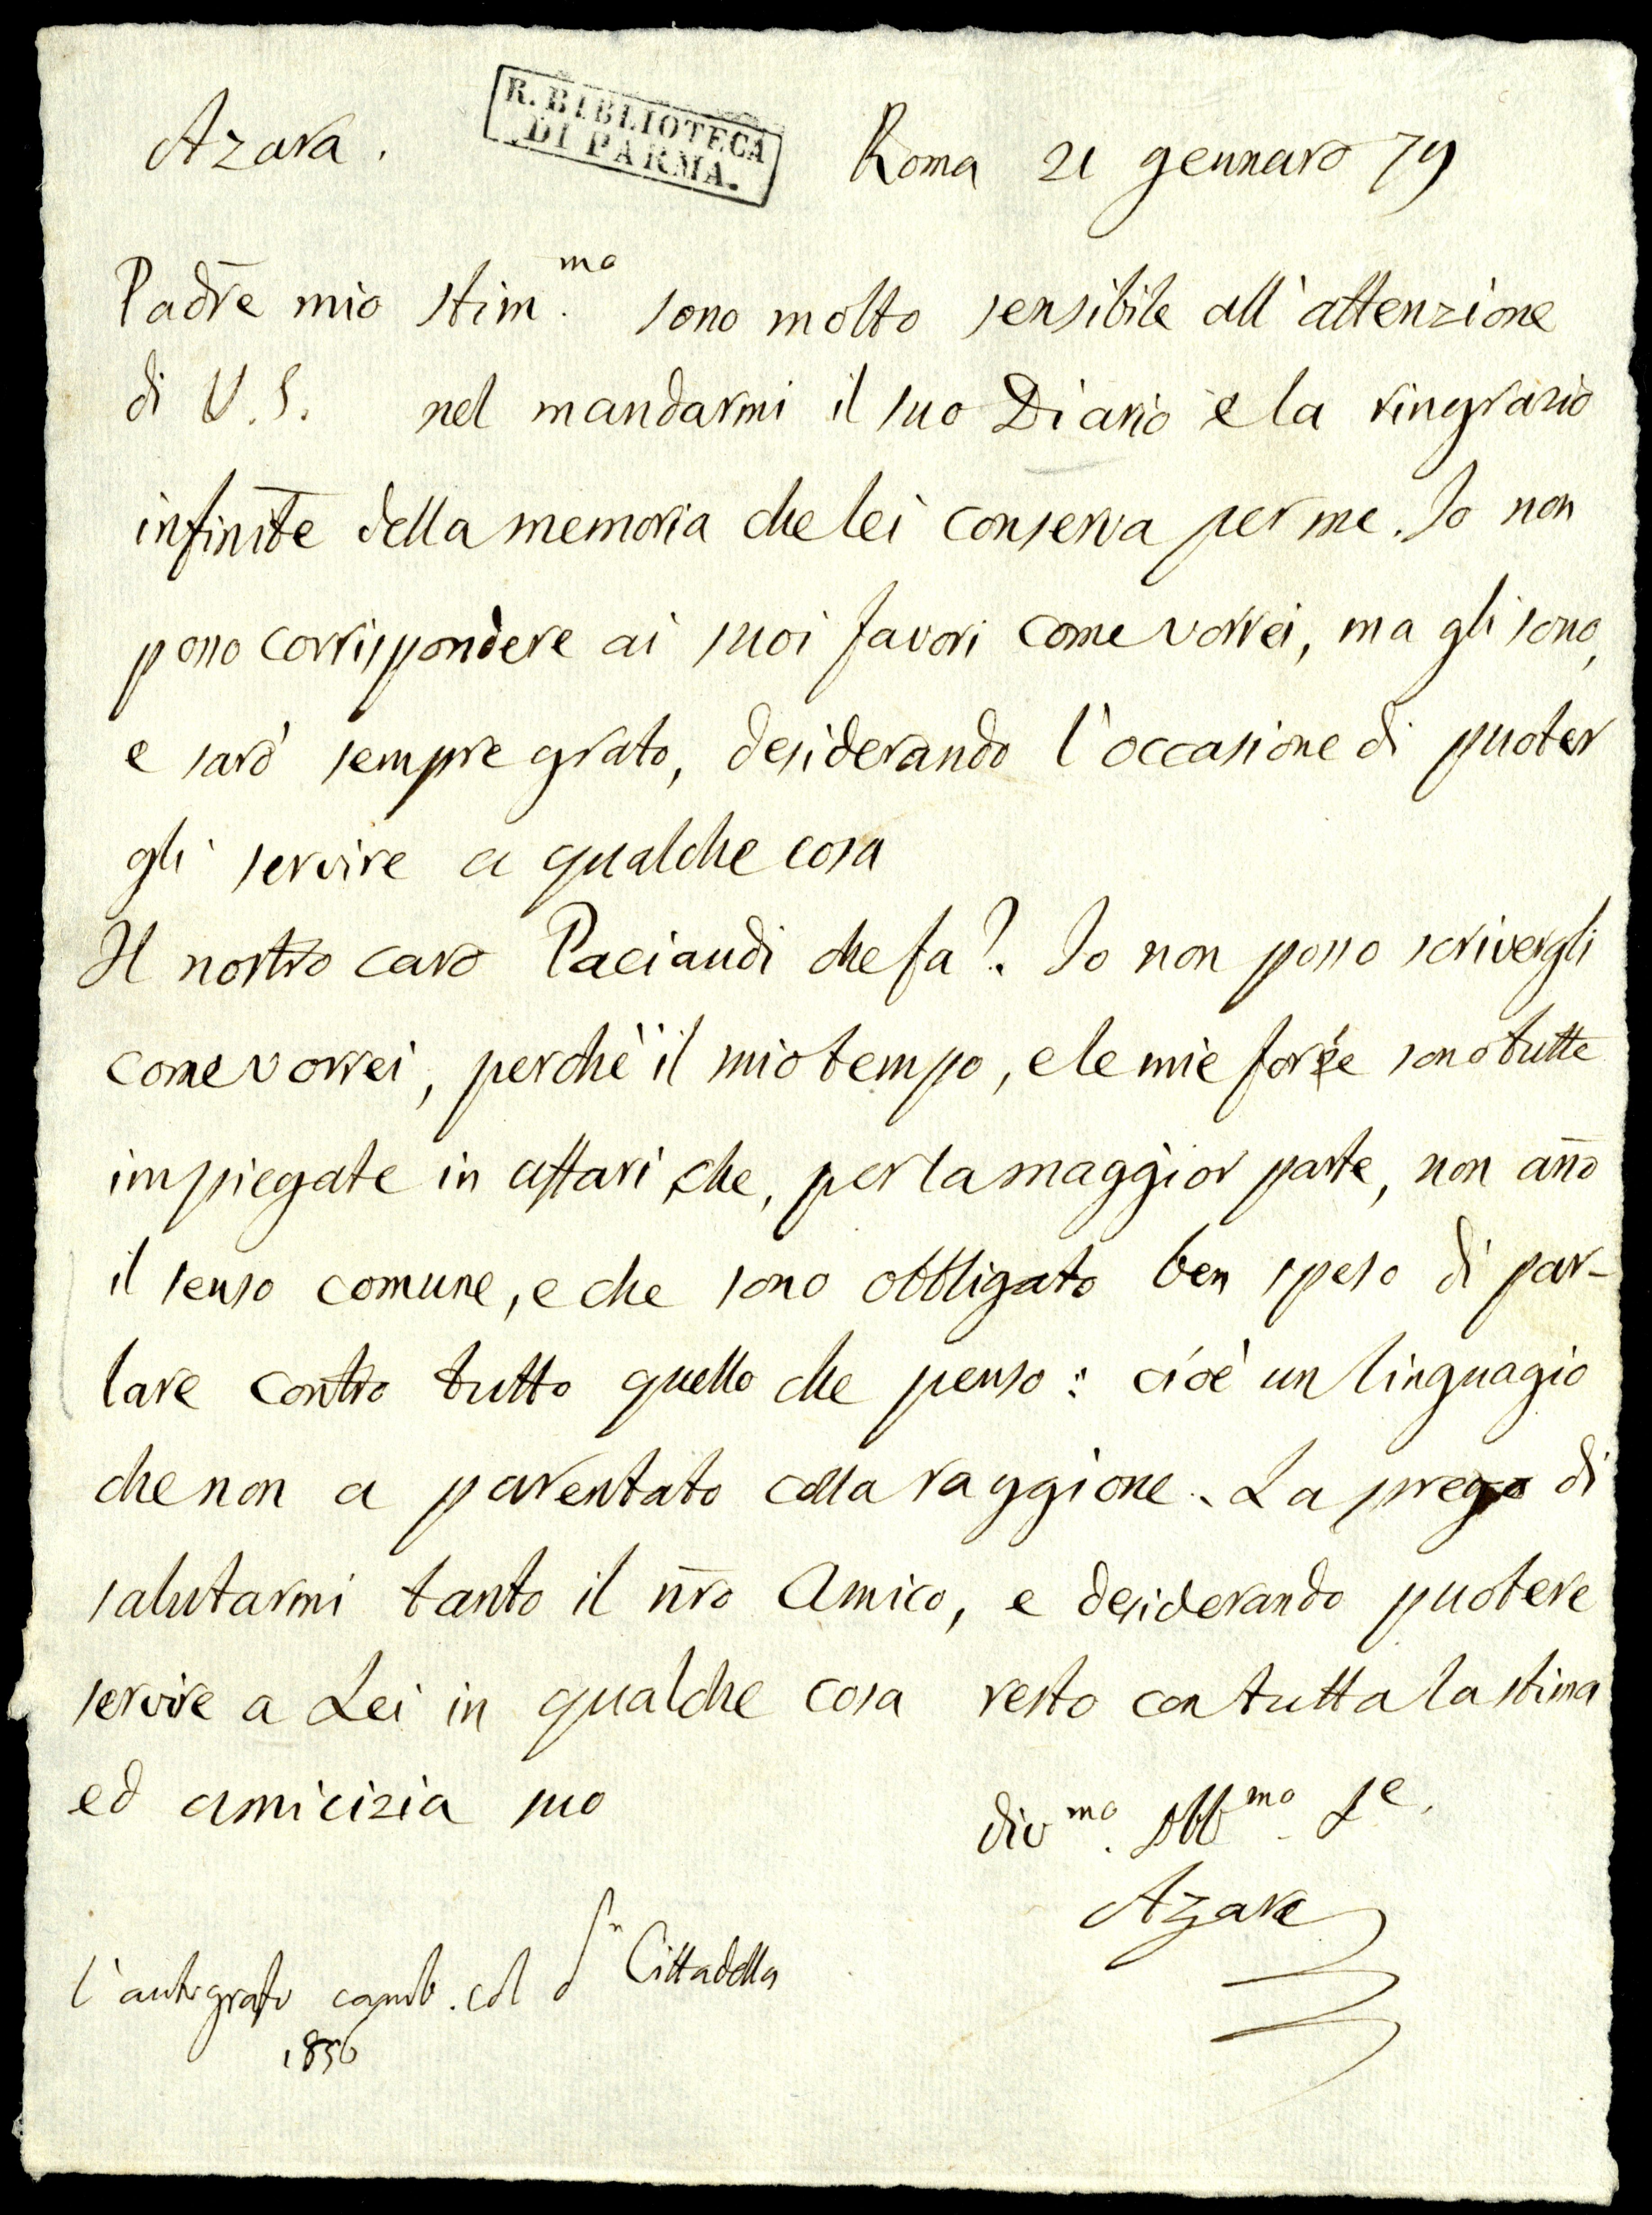 Azara.
R. BIBLIOTECA
DI PARMA.
Roma 21 gennaro 79
Padre mio stim.mo sono molto sensibile all'attenzione
di V. S. nel mandarmi il suo Diario e la ringrazio
infinite della memoria che lei conserva per me. Io non
posso corrispondere ai suoi favori come vorrei, ma gli sono,
e sarò sempre grato, desiderando l'occasione di puoter
gli servire a qualche cosa
Il nostro caro Paciaudi che fa? Io non posso scrivergli
come vorrei, perchè il mio tempo, e le mie forze sono tutte
impiegate in affari che, per la maggior parte, non año
il senso comune, e che sono obbligato ben speso di par-
lare contro tutto quello che penso: cioè un linguagio
che non a parentato colla raggione. La prego di
salutarmi tanto il n̄ro Amico, e desiderando puotere
servire a Lei in qualche cosa resto con tutta la stima
ed amicizia suo
div.mo obb.mo
Azara
l'autografo camb. col Sr Cittadella
1856